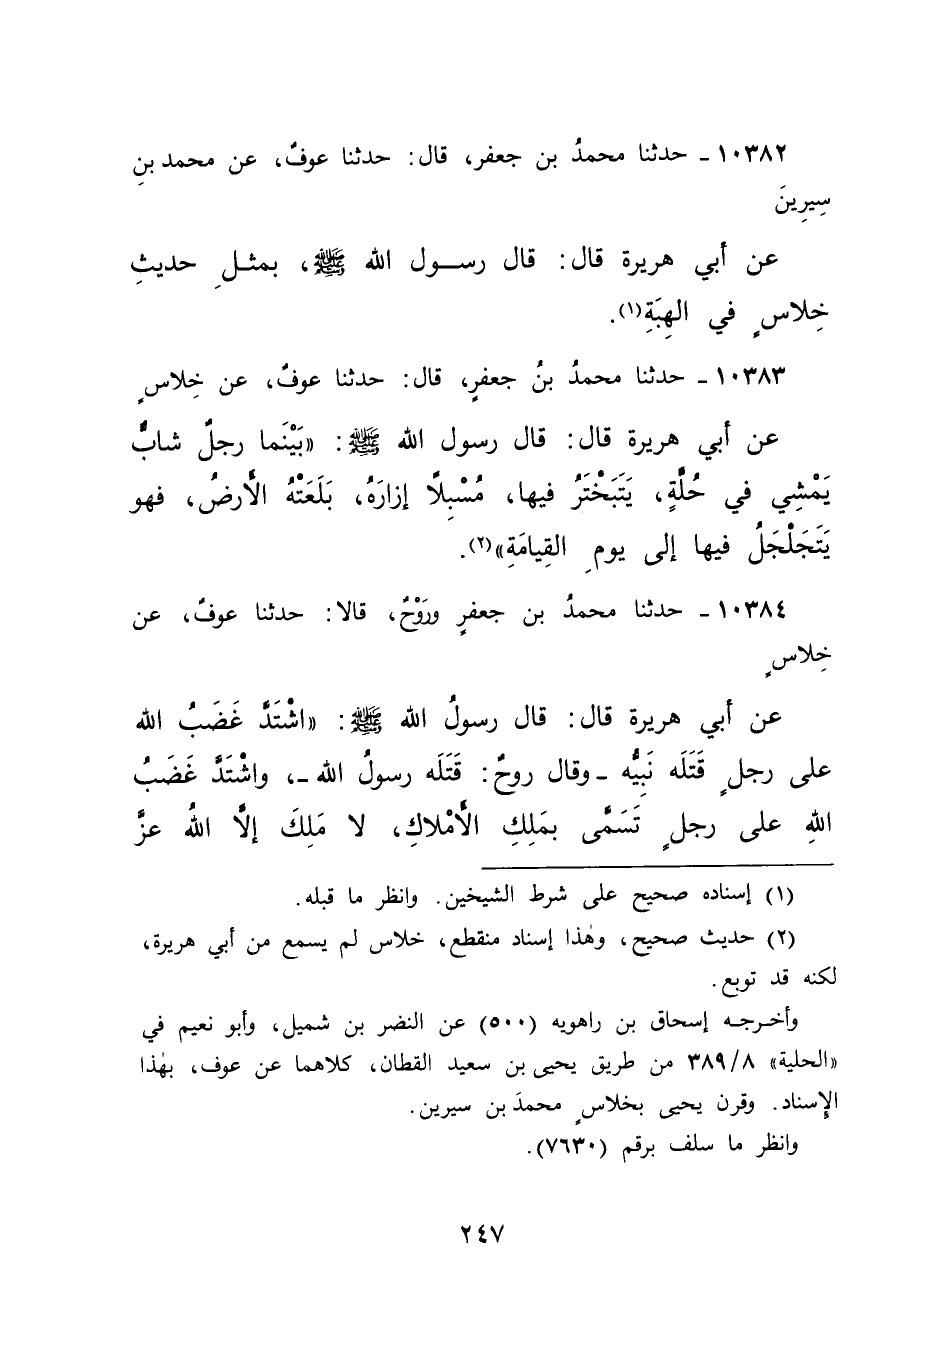 ١٠٣٨٢ ـ حدثنا محمدُ بن جعفر، قال: حدثنا عوفٌ، عن محمد بنِ
سِيرِينَ
عن أبي هريرة قال: قال رســول الله ﷺ، بمثــلِ حديثِ
خِلاسٍ في الهِبَةِ(١).
١٠٣٨٣ ـ حدثنا محمدُ بنُ جعفرٍ، قال: حدثنا عوفٌ، عن خِلاسٍ
عن أبي هريرة قال: قال رسول الله ﷺ: «بَيْنَما رجلٌ شابٌّ
يَمْشِي في حُلَّةٍ، يَتَبَخْتَرُ فيها، مُسْبِلًا إزارَهُ، بَلَعَتْهُ الأرضُ، فهو
يَتَجَلْجَلُ فيها إلى يومِ القِيامَةِ»(٢).
١٠٣٨٤ ـ حدثنا محمدُ بن جعفرٍ ورَوْحٌ، قالا: حدثنا عوفٌ، عن
خِلاسٍ
عن أبي هريرة قال: قال رسولُ الله ﷺ: «اشْتَدَّ غَضَبُ الله
على رجلٍ قَتَلَه نَبِيُّه ـ وقال روحٌ: قَتَلَه رسولُ الله ـ، واشْتَدَّ غَضَبُ
اللهِ على رجلٍ تَسَمَّى بمَلِكِ الأَمْلاكِ، لا مَلِكَ إلَّا اللهُ عزَّ
(١) إسناده صحيح على شرط الشيخين. وانظر ما قبله.
(٢) حديث صحيح، وهٰذا إسناد منقطع، خلاس لم يسمع من أبي هريرة،
لكنه قد توبع.
وأخـرجـه إسحاق بن راهويه (٥٠٠) عن النضر بن شميل، وأبو نعيم في
«الحلية» ٣٨٩/٨ من طريق يحيى بن سعيد القطان، كلاهما عن عوف، بهٰذا
الإسناد. وقرن يحيى بخلاسٍ محمدَ بن سيرين.
وانظر ما سلف برقم (٧٦٣٠).
٢٤٧